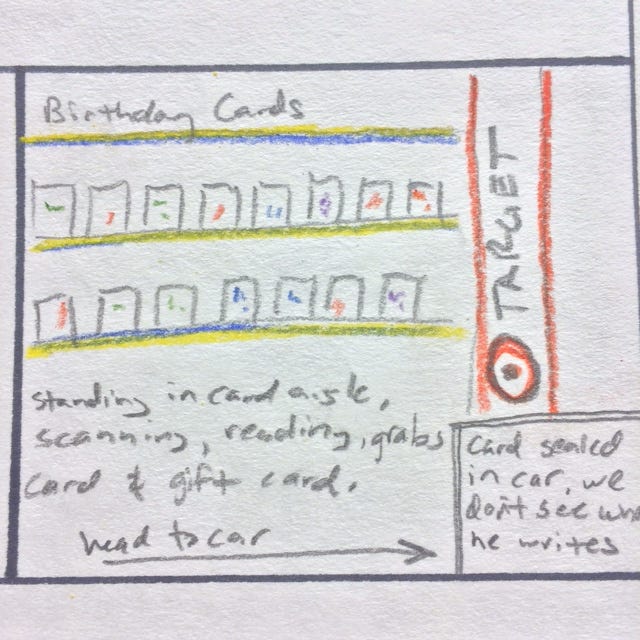 Birthday Cards
TARGET
standing in card aisle,
scanning, reading, grabs
card & gift card.
head to car
Card sealed
in car, we
don't see wh
he writes